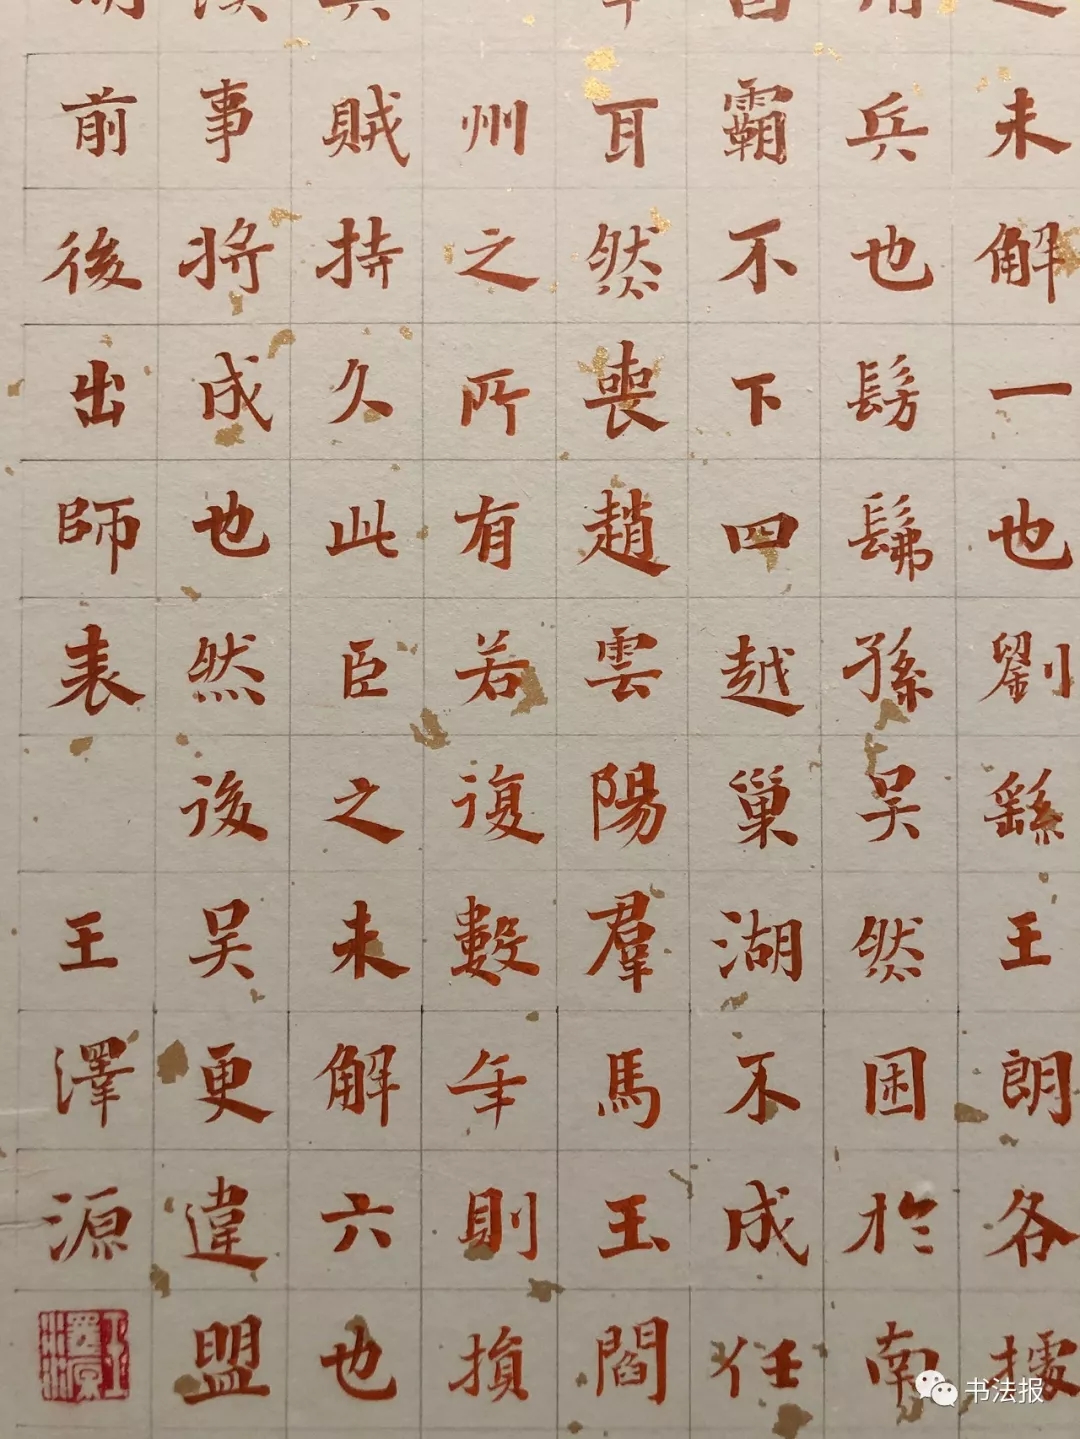 未解一也劉繇王朗各據
兵也髣髴孫吳然困於南
霸不下四越巢湖不成任
耳然喪趙雲陽羣馬玉閻
州之所有若復數年則損
賊持久此臣之未解六也
事將成也然後吳更違盟
前後出師表 王澤源
书法报